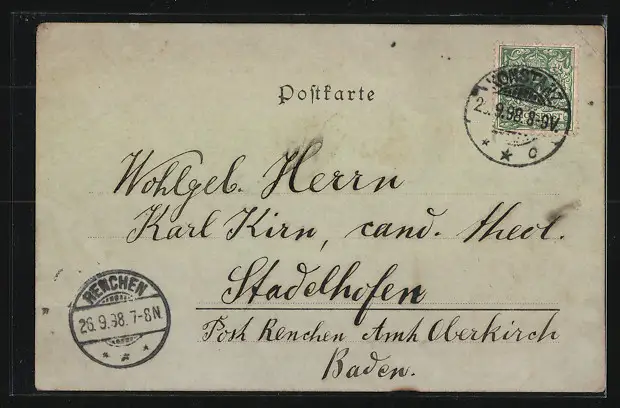 Postkarte
KONSTANZ
9.98.8-9V.
* * c
Wohlgeb. Herrn
Karl Kirn, cand. theol.
Stadelhofen
Post Renchen Amt Oberkirch
Baden.
RENCHEN
26.9.98.7-8N
* * *